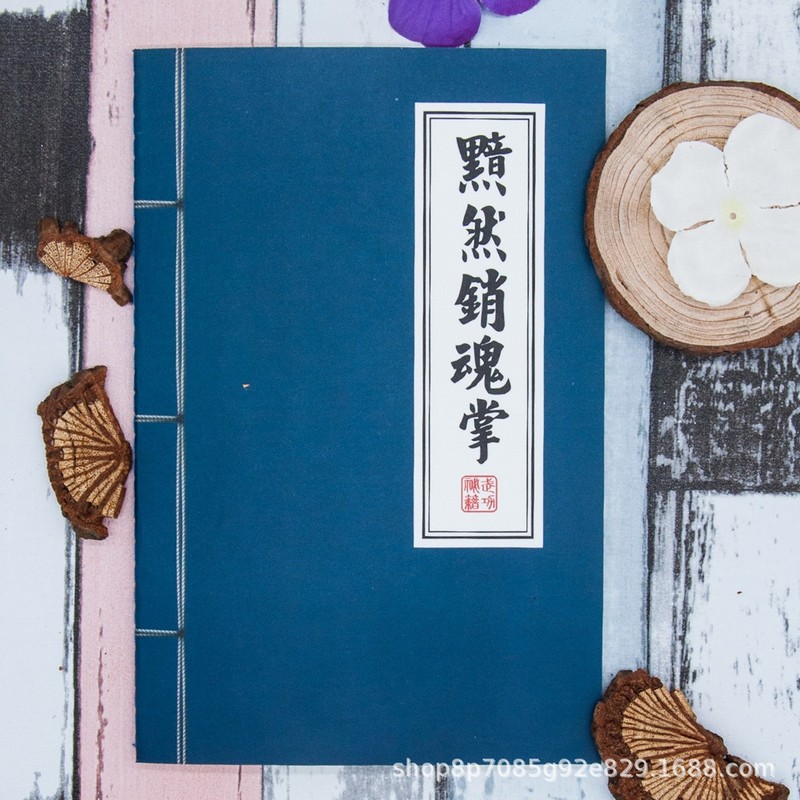 黯然銷魂掌
武功
秘籍
shop8p7085g92e829.1688.com